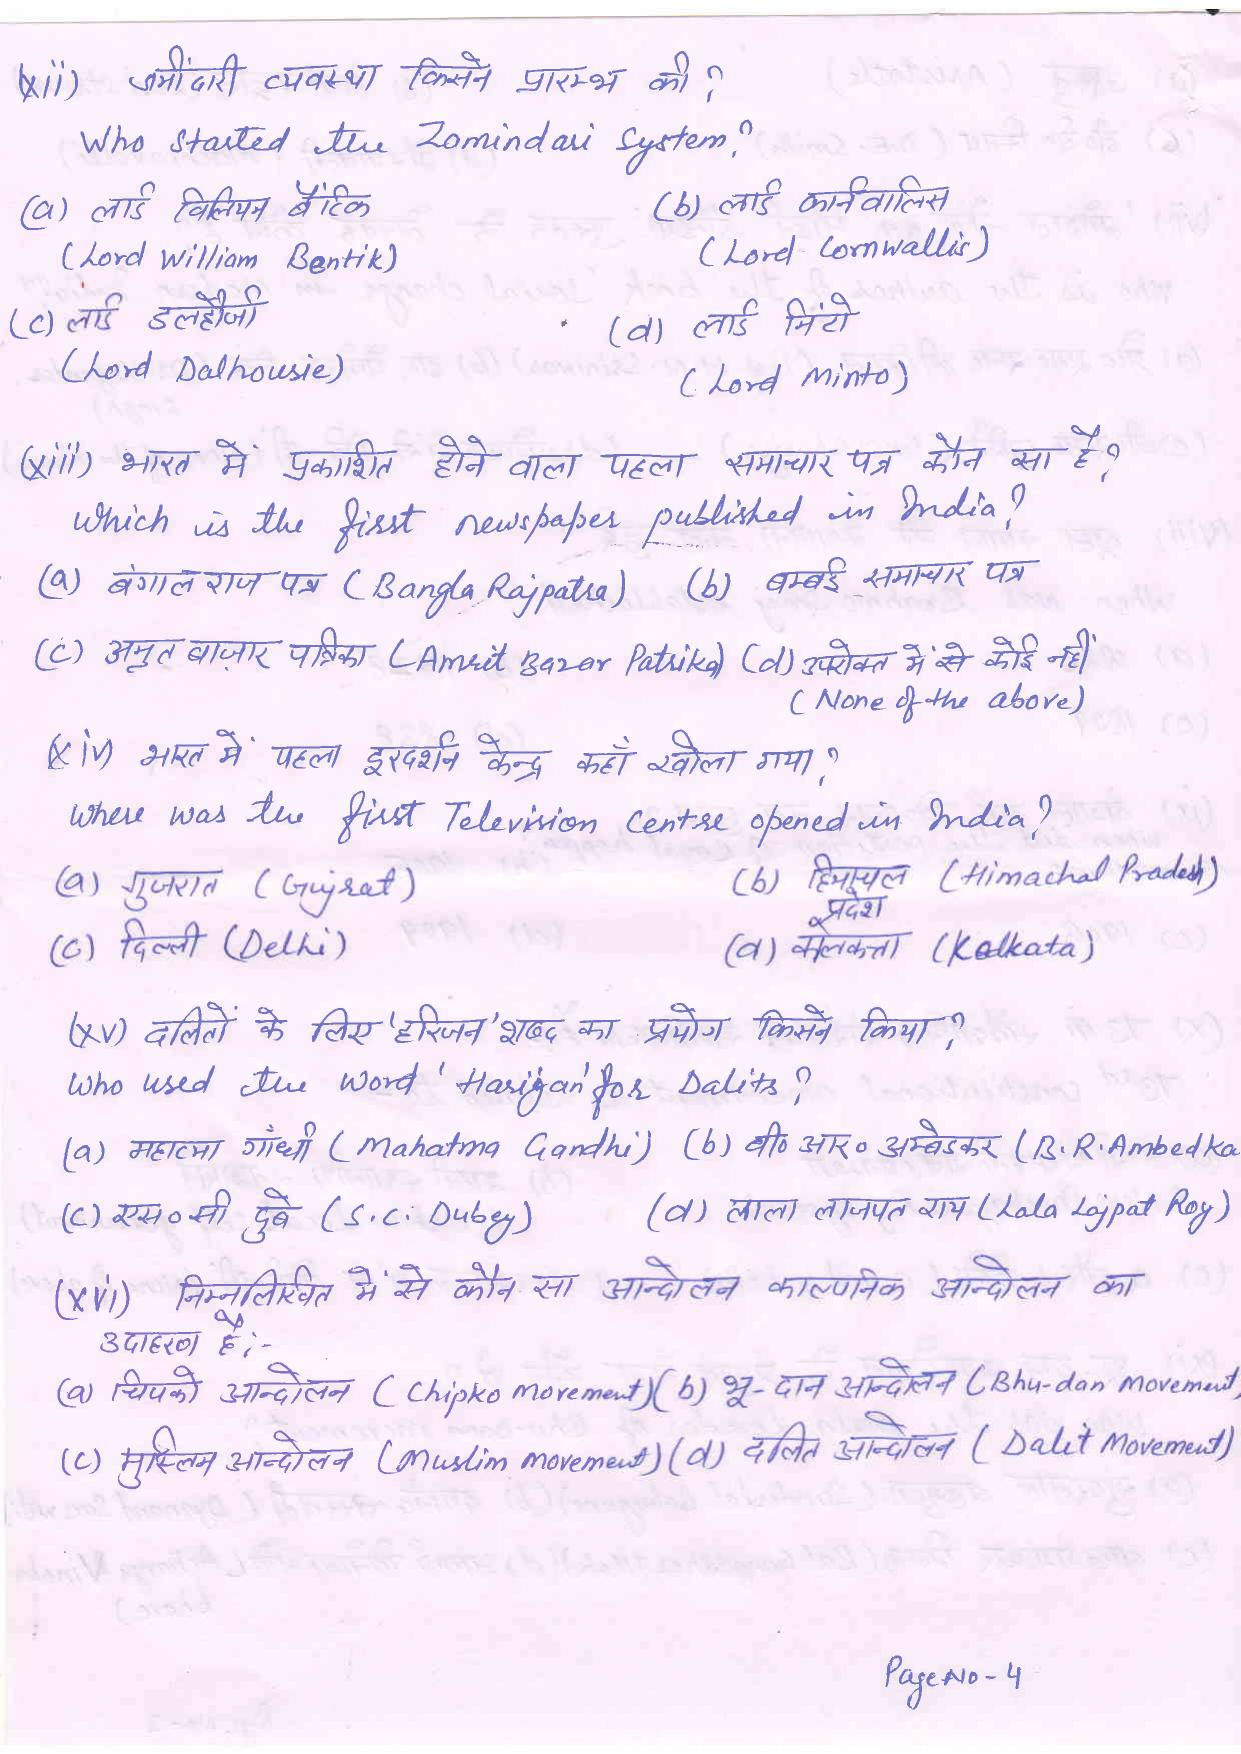 (xii) जमींदारी व्यवस्था किसने प्रारम्भ की?
Who started the Zamindari System?
(a) लार्ड विलियम बैंटिक (b) लार्ड कार्नवालिस
(Lord William Bentik) (Lord Cornwallis)
(c) लार्ड डलहौजी (d) लार्ड मिंटो
(Lord Dalhousie) (Lord Minto)
(xiii) भारत में प्रकाशित होने वाला पहला समाचार पत्र कौन सा है?
Which is the first newspaper published in India?
(a) बंगाल राज पत्र (Bangla Rajpatra) (b) बम्बई समाचार पत्र
(c) अमृत बाज़ार पत्रिका (Amrit Bazar Patrika) (d) उपरोक्त में से कोई नहीं
(None of the above)
(xiv) भारत में पहला दूरदर्शन केन्द्र कहाँ खोला गया?
Where was the first Television Centre opened in India?
(a) गुजरात (Gujrat) (b) हिमाचल (Himachal Pradesh)
प्रदेश
(c) दिल्ली (Delhi) (d) कोलकत्ता (Kolkata)
(xv) दलितों के लिए 'हरिजन' शब्द का प्रयोग किसने किया?
Who used the word 'Harijan' for Dalits?
(a) महात्मा गाँधी (Mahatma Gandhi) (b) बी० आर० अम्बेडकर (B.R. Ambedka
(c) एस० सी दुबे (S.C. Dubey) (d) लाला लाजपत राय (Lala Lajpat Roy)
(xvi) निम्नलिखित में से कौन सा आन्दोलन काल्पनिक आन्दोलन का
उदाहरण है:-
(a) चिपको आन्दोलन (Chipko Movement) (b) भू-दान आन्दोलन (Bhu-dan Movement)
(c) मुस्लिम आन्दोलन (Muslim Movement) (d) दलित आन्दोलन (Dalit Movement)
Page No - 4